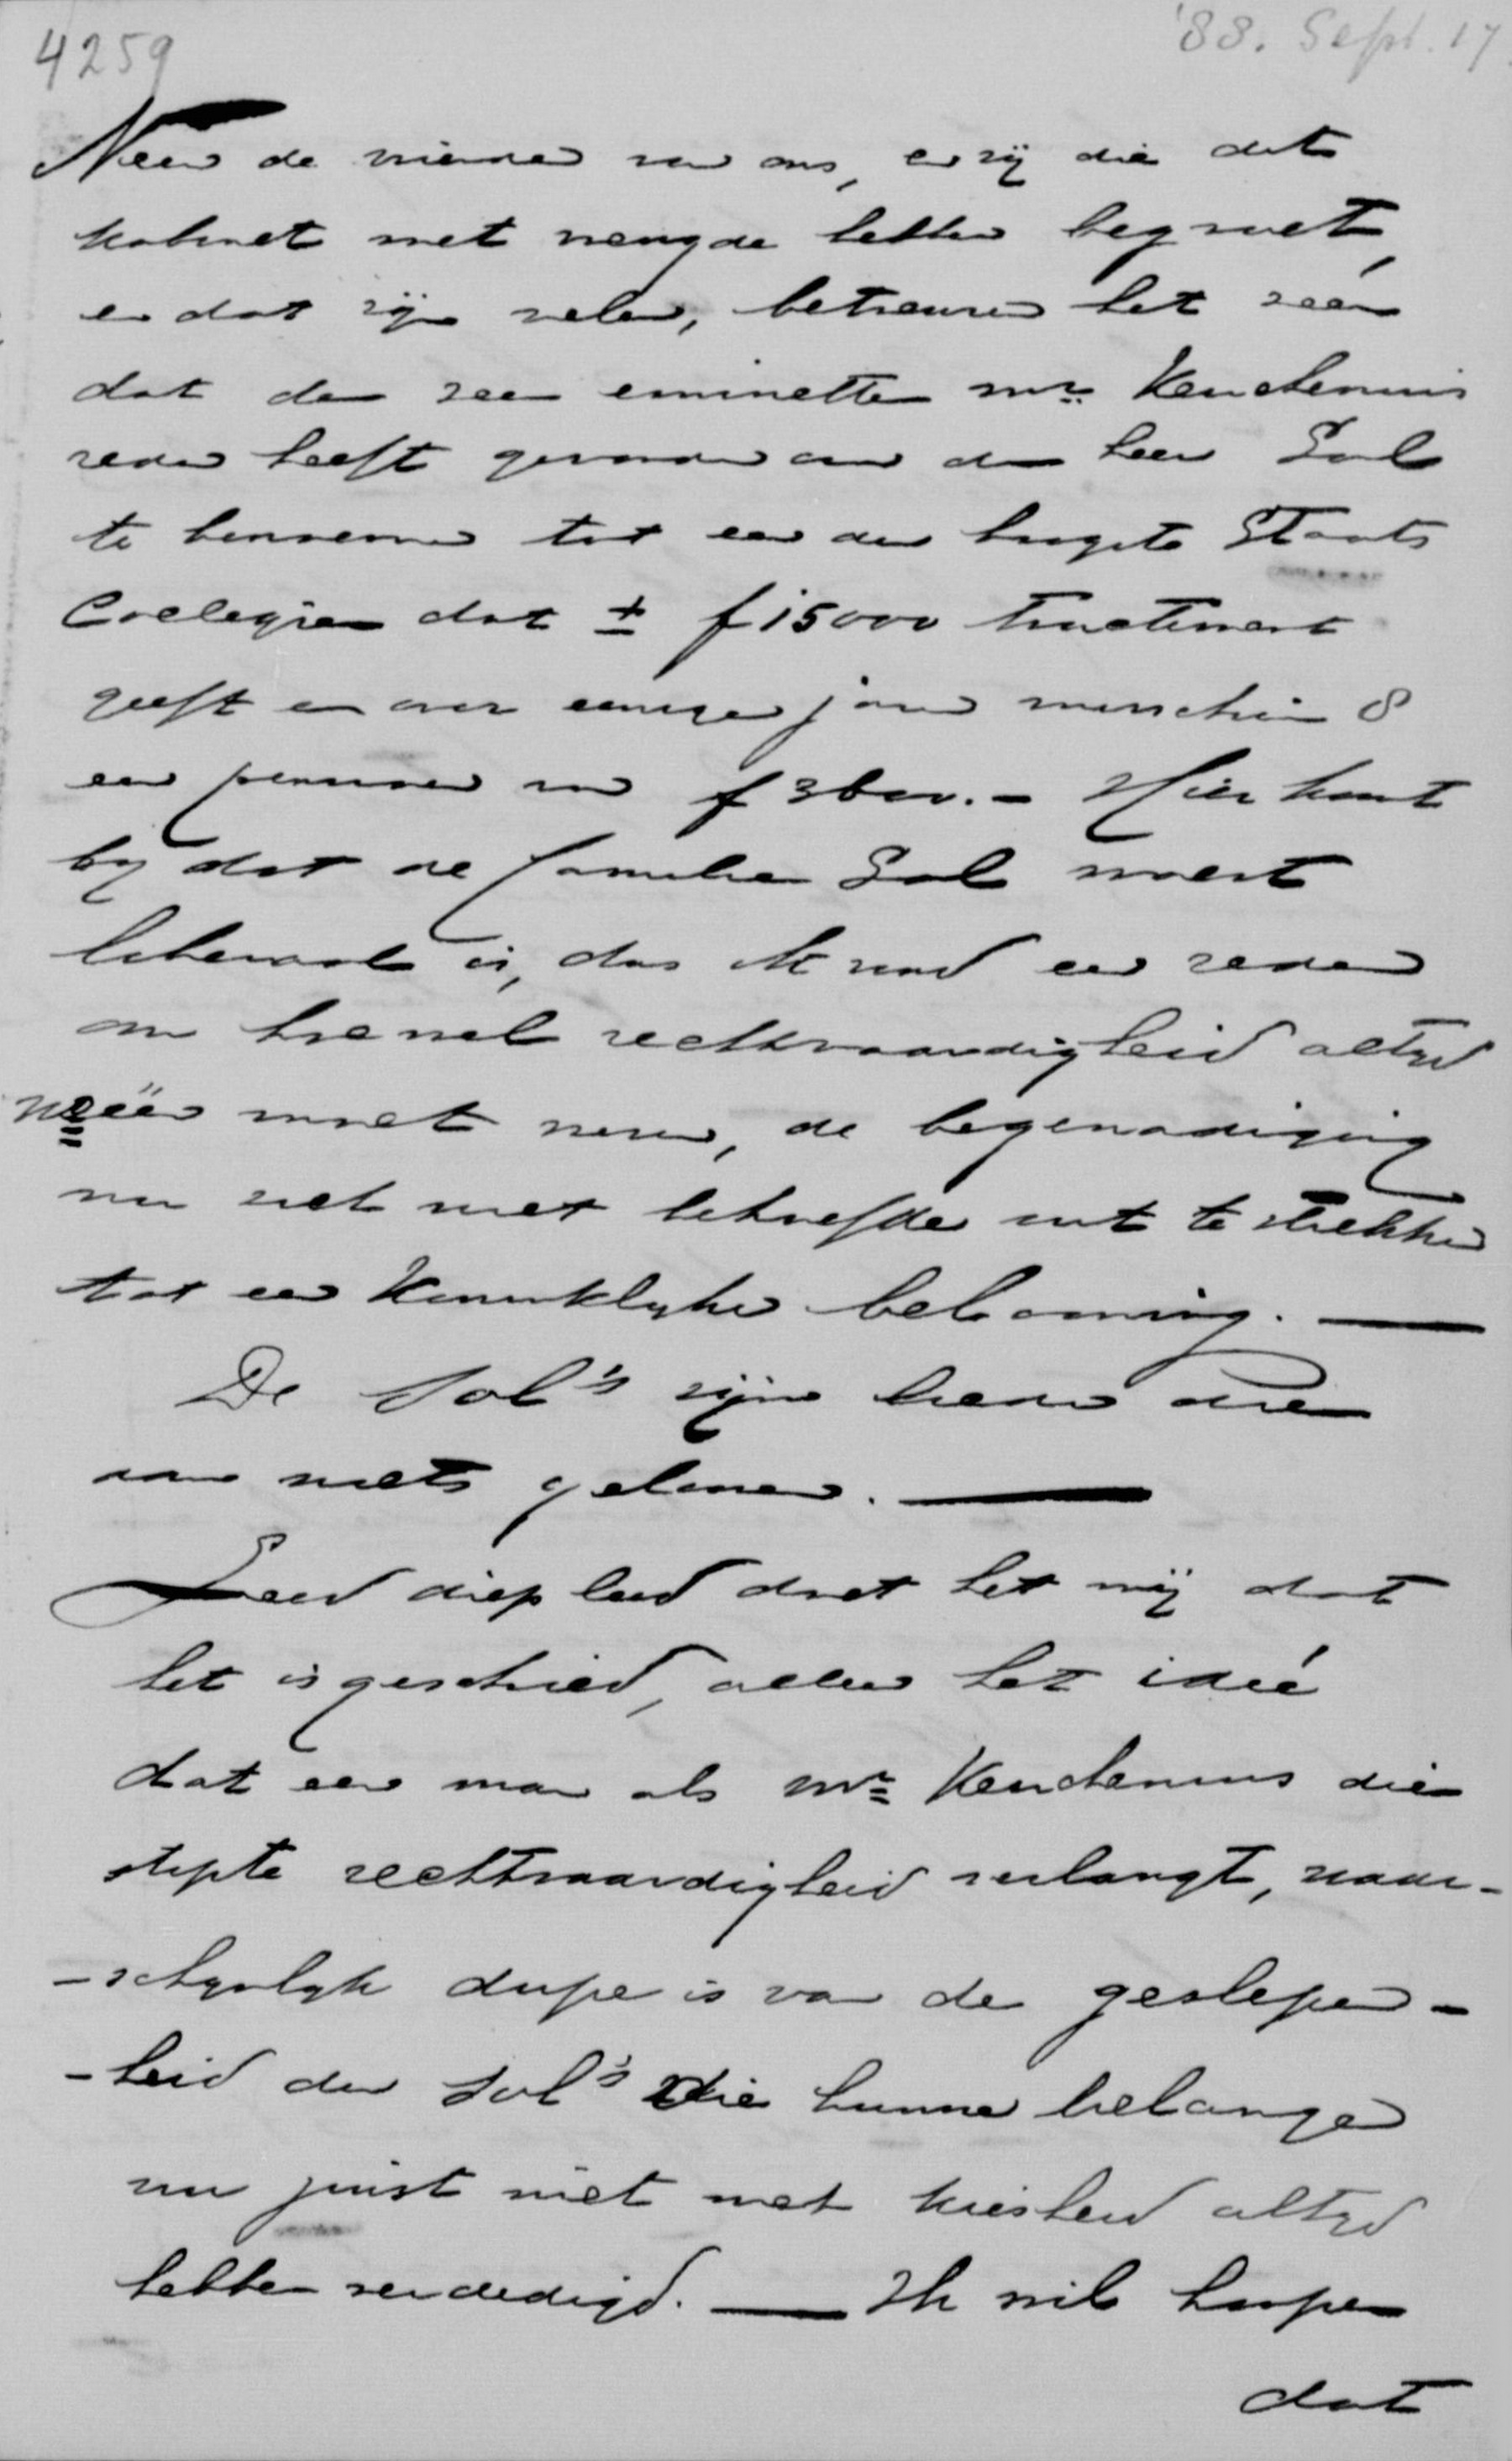 4259
'88. Sept. 17
Neen de vrienden van ons, en zij die dit
kabinet met vreugde hebben begroet,
en dat zijn velen, betreuren het zeer
dat de zeer eminente mr. Keuchenius
reden heeft gevonden om den heer Sol
te benoemen tot een der hoogste Staats
Collegien dat ± f 15000 tractement
geeft en over eenige jaren misschien
een pensioen van f 3600.- Hier komt
bij dat de familie Sol meest
liberaal is, dus ik vind een reden
om hoewel rechtvaardigheid altijd
moet zijn, de begenadiging
nu niet met behoefde uit te strekken
tot een Koninklyke belooning. —
De Sol's zijn lieden die
aan niets gelooven. —
Leed diep leed doet het mij dat
het is geschied, alleen het ideé
dat een man als mr. Keuchenius die
stipte rechtvaardigheid verlangt, waar-
-schynlyk dupe is van de geslepen-
-heid der Sol's die hunne belangen
nu juist niet met kiesheid altyd
hebben verdedigd. — Ik wil hoopen
dat